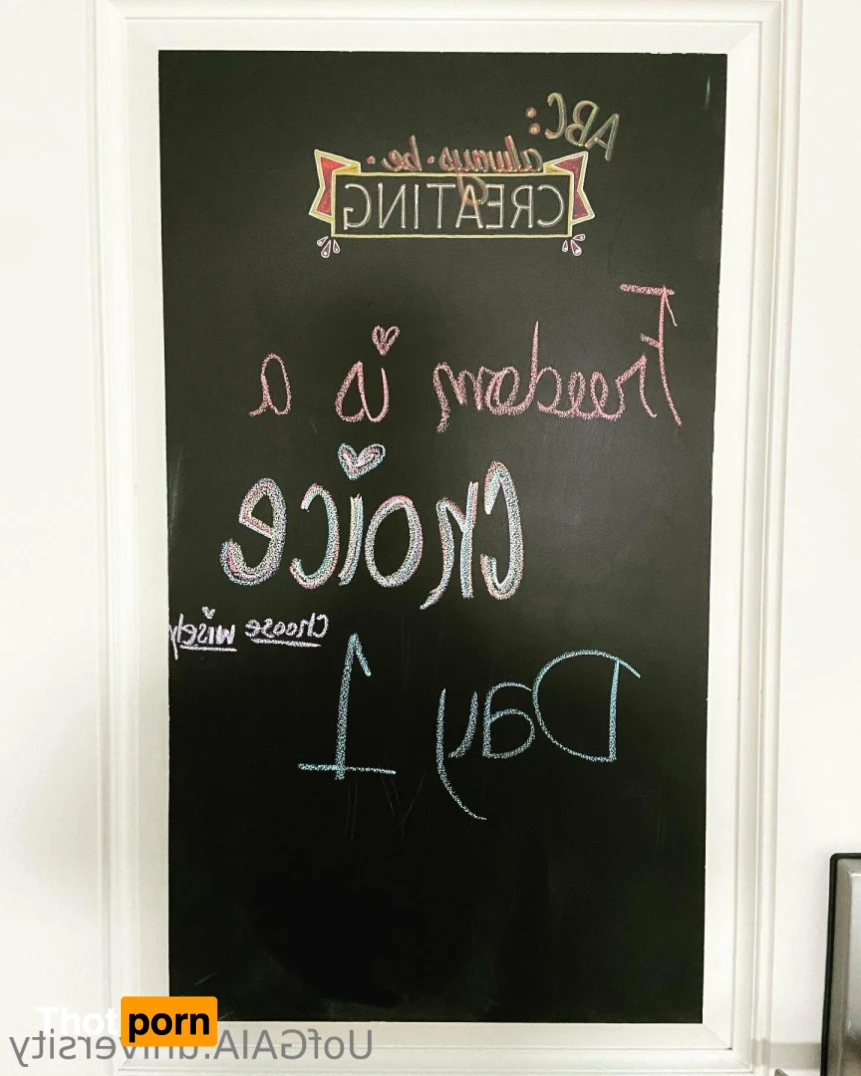 ABC:
always • be •
CREATING
Freedom is a
choice
choose wisely
Day 1
Thot porn
UofGAIA.university